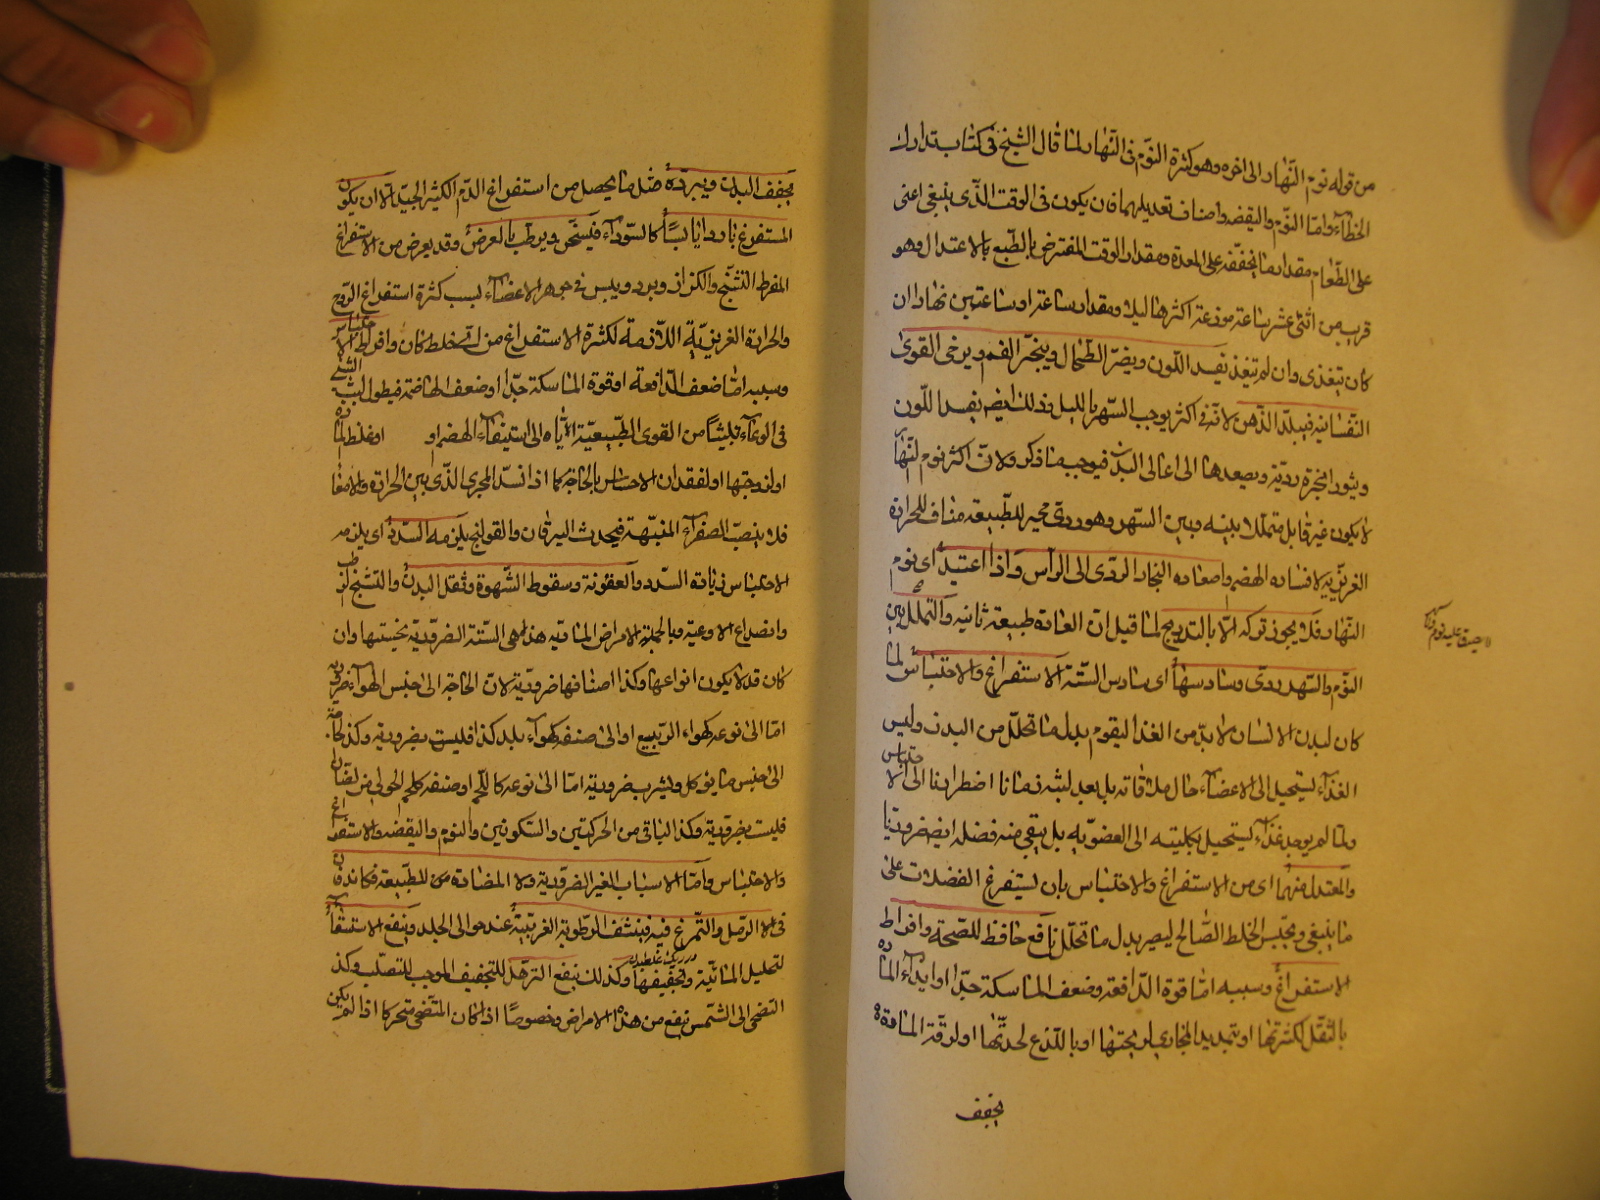 من قوله نوم النهار الى اخره وهو كثرة النوم فى النهار لما قال الشيخ فى كتاب تدارك
الخطاء واما النوم واليقضه واصناف تعديلهما فان يكون فى الوقت الذى ينبغى اعنى
على الطعام مقدار ما يخففه على المعدة ومقدار الوقت المفترض بالطبع بالاعتدال وهو
قريب من اثنى عشر ساعة موزعة اكثرها ليلا ومقدار ساعة او ساعتين نهارا وان
كان يتغذى وان لم يتغذ نفسد اللون ويضر الطحال ويبخر الفم ويرخى القوى
النفسانية فيبلد الذهن لانه فى اكثر يوجب السهر بالليل وذلك ايضا يفسد اللون
ويثور ابخرة ردية ويصعدها الى اعالى البدن فيوجب ما ذكر ولان اكثر نوم النهار
لا يكون غير قابل متململا بينه وبين السهر وهو ردى محير للطبيعة مناف للحرارة
الغريزية لافساده الهضم واصعاده البخار الردى الى الراس واذا اعتيد اى نوم
النهار فلا يجوز تركه الا بالتدريج لما قيل ان العادة طبيعة ثانية والتململ بين
النوم والسهر ردى وسادسها اى سادس الستة الاستفراغ والاحتباس لما
كان لبدن الانسان لا بد من الغذا ليقوم بدل ما تحلل من البدن وليس
الغذاء يستحيل الى الاعضاء حال ملاقاته بل بعد لبثه زمانا اضطررنا الى الاحتباس
ولما لم يوجد غذاء يستحيل بكليته الى العضوية بل يبقى منه فضلة ايضا ضروريا
والمعتدل منهما اى من الاستفراغ والاحتباس بان يستفرغ الفضلات على
ما ينبغى ويحتبس الخلط الصالح ليصير بدل ما تحلل نافع حافظ للصحة وافراط
الاستفراغ وسببه اما قوة الدافعة وضعف الماسكة جدا او ايذاء المادة
بالثقل لكثرتها او بتمديد المجارى لريحتها او باللذع لحدتها او لرقة المادة
يجفف
يجفف البدن ويبرده مثل ما يحصل من استفراغ الدم الكثير الجيد الا ان يكون
المستفرغ باردا يابسا كالسوداء فيسخن ويرطب بالعرض وقد يعرض من الاستفراغ
المفرط التشنج والكزاز وبرد ويبس فى جوهر الاعضاء بسبب كثرة استفراغ الروح
والحرارة الغريزية اللازمة لكثرة الاستفراغ من اى خلط كان وافراط الاحتباس
وسببه اما ضعف الدافعة او قوة الماسكة جدا او ضعف الهاضمة فيطول لبث الشئ
فى الوعاء من القوى الطبيعية اياه الى استيفاء الهضم او او غلظ المادة
او لزوجتها او لفقدان الاحساس بالحاجة كما اذا انسد المجرى الذى بين المرارة والامعا
فلا ينصب الصفراء المنبهة فيحدث اليرقان والقولنج يلزمه السدد اى يلزمه
الاحتباس زيادة السدد والعفونة وسقوط الشهوة وثقل البدن والتشنج الرطب
وانصداع الاوعية وبالجملة الامراض المادية هذا هى الستة الضرورية بجنسها وان
كان قد لا يكون انواعها وكذا اصنافها ضرورية لان الحاجة الى جنس الهواء ضرورية
اما الى نوعه كهواء الربيع او الى صنفه كهواء بلد كذا فليست بضرورية وكذا الحاجة
الى جنس ما يؤكل ويشرب ضرورية اما الى نوعه كاللحم او صنفه كلحم الحولى من الضان
فليست بضرورية وكذا الباقى من الحركتين والسكونين والنوم واليقضه والاستفراغ
والاحتباس واما الاسباب الغير الضرورية ولا المضادة للطبيعة فكاندفان
فى الرمل والتمرغ فيه فينشف الرطوبة الغريبة عند حوالى الجلد وينفع الاستسقاء
لتحليل المائية وتجفيفها وكذلك ينفع الترهل للتجفيف الموجب للتصلب وكذا
التضحى الى الشمس ينفع من هذه الامراض وخصوصا اذا كان المتضحى متحركا اذا لم يكن